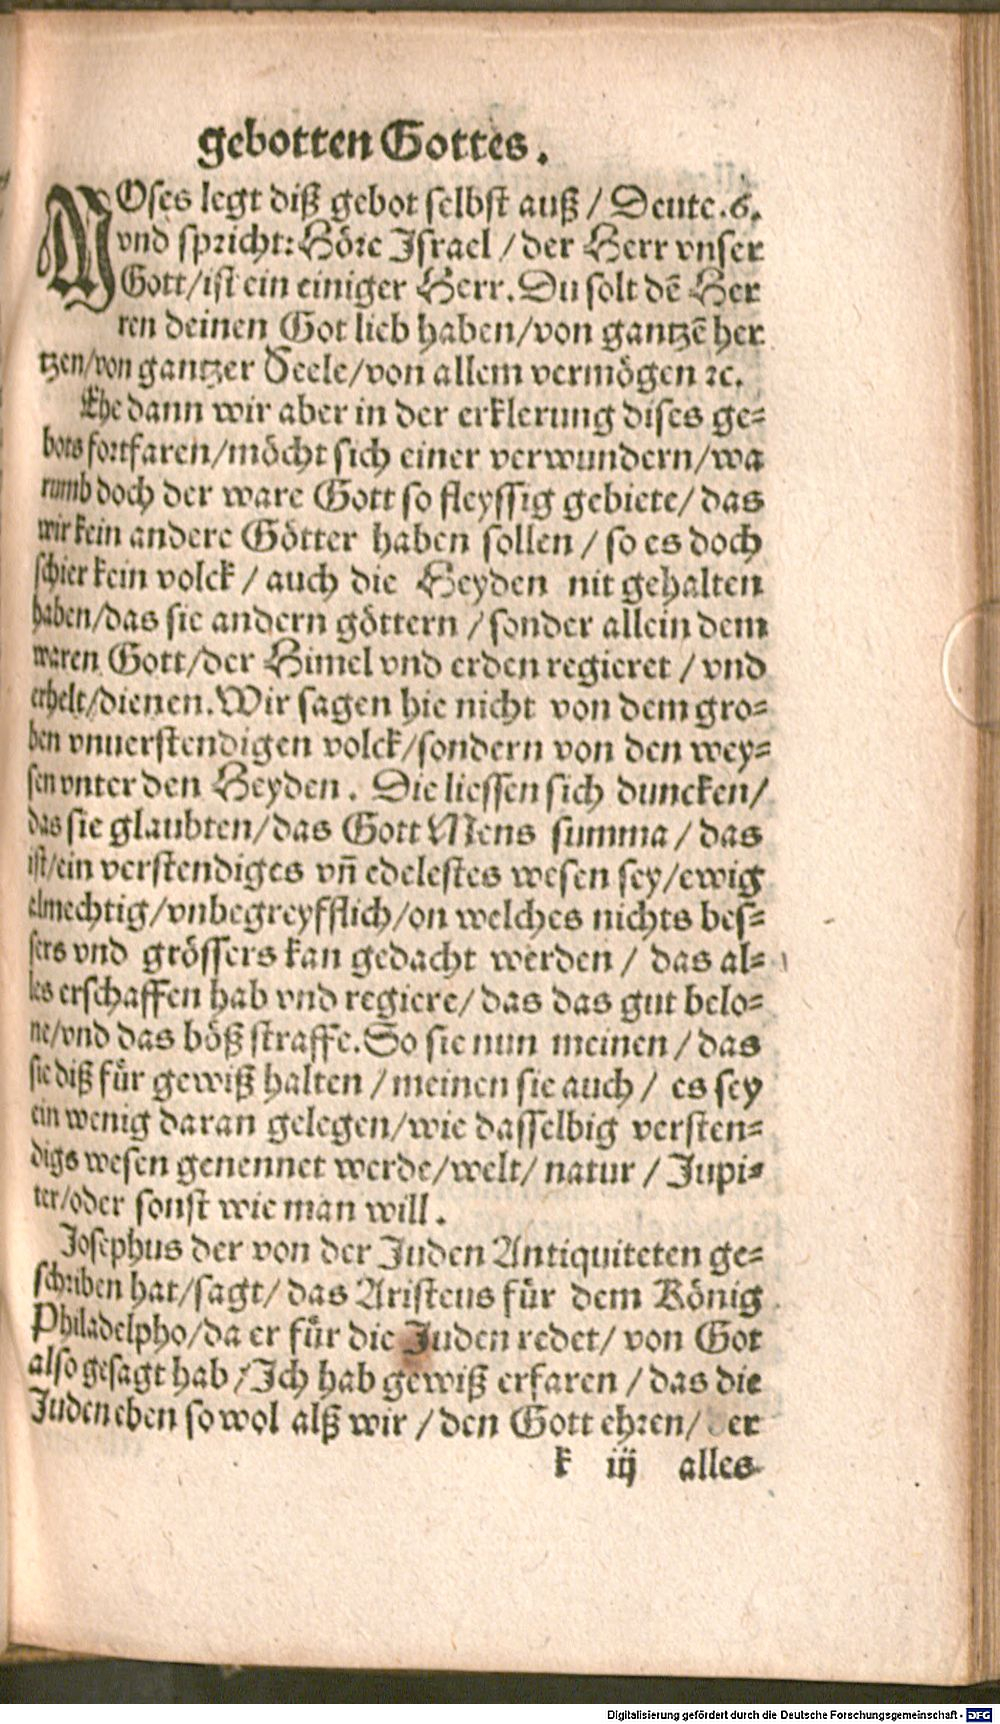 gebotten Gottes.
MOses legt diß gebot selbst auß / Deute.6.
vnd spricht: Höre Israel / der Herr vnser
Gott/ist ein einiger Herr. Du solt dẽ Her
ren deinen Got lieb haben/von gantzẽ her
tzen/von gantzer Seele/von allem vermögen ꝛc.
Ehe dann wir aber in der erklerung dises ge-
bots fortfaren/möcht sich einer verwundern/wa
rumb doch der ware Gott so fleyssig gebiete/ das
wir kein andere Götter haben sollen / so es doch
schier kein volck / auch die Heyden nit gehalten
haben/das sie andern göttern / sonder allein dem
waren Gott/der Himel vnd erden regieret / vnd
erhelt/dienen. Wir sagen hie nicht von dem gro-
ben vnuerstendigen volck/sondern von den wey-
sen vnter den Heyden. Die liessen sich duncken/
das sie glaubten/das Gott Mens summa / das
ist/ein verstendiges vñ edelestes wesen sey/ewig
almechtig/vnbegreyfflich/on welches nichts bes-
sers vnd grössers kan gedacht werden / das al-
les erschaffen hab vnd regiere/das das gut belo-
ne/vnd das böß straffe. So sie nun meinen / das
sie diß für gewiß halten / meinen sie auch / es sey
ein wenig daran gelegen/wie dasselbig versten-
digs wesen genennet werde/welt/ natur / Jupi-
ter/oder sonst wie man will.
Josephus der von der Juden Antiquiteten ge-
schriben hat/sagt/ das Aristeus für dem König
Philadelpho/da er für die Juden redet/ von Got
also gesagt hab / Ich hab gewiß erfaren / das die
Juden eben so wol alß wir / den Gott ehren/ der
k iij alles
Digitalisierung gefördert durch die Deutsche Forschungsgemeinschaft - DFG